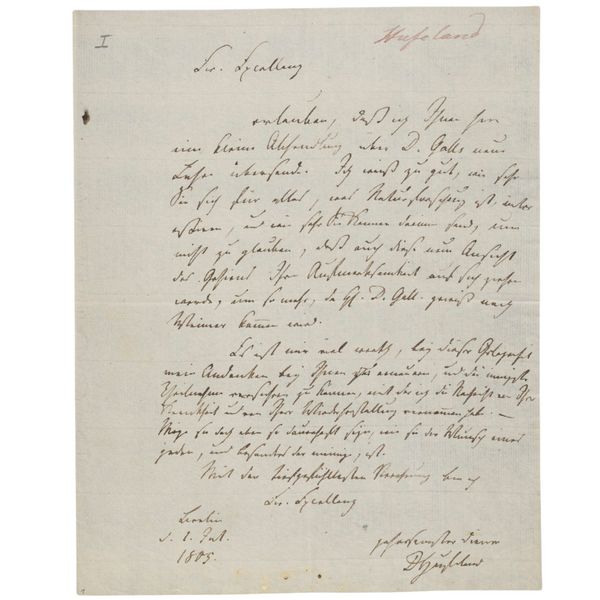 I
Hufeland
Ew. Excellenz
erlauben, daß ich Ihnen hier
eine kleine Abhandlung über D. Galls neue
Lehre übersende. Ich weiß zu gut, wie sehr
Sie sich für alles, was Naturforschung ist, inter
essiren, und wie sehr Sie Kenner davon sind, um
nicht zu glauben, daß auch diese neue Ansicht
des Gehirns Ihre Aufmerksamkeit auf sich ziehen
werde, um so mehr, da H. D. Gall gewiß nach
Weimar kommen wird.
Es ist mir viel werth, bey dieser Gelegenheit
mein Andenken bey Ihnen zu erneuern, und die innigste
Theilnahme versichern zu können, mit der ich die Nachricht von Ihrer
Krankheit und von Ihrer Wiederherstellung vernommen habe. –
Möge sie doch eben so dauerhaft seyn, wie sie der Wunsch eines
jeden, und besonders der meinige, ist.
Mit der tiefgefühltesten Verehrung bin ich
Ew. Excellenz
Berlin
d. 1.
1805.
gehorsamster Diener
D Hufeland